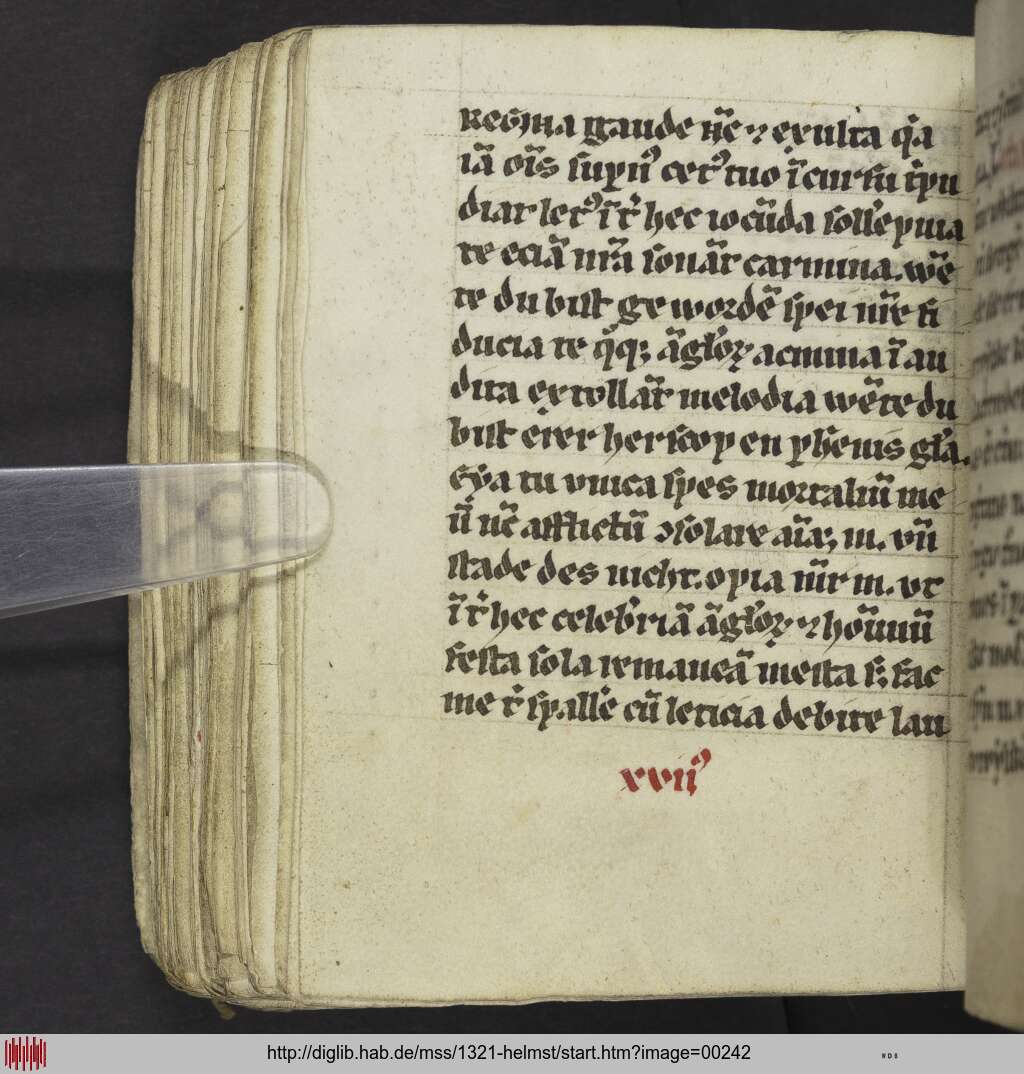 Regina gaude nūc ⁊ exulta q̄a
iā oīs suꝑn᷒ cet᷒ tuo ī cursu t͛pu
diat let᷒ īt͛ hec iocūda soll'epnia
te eciā nr̄a sonāt carmina. wē
te du bist ge wordē spei nr̄e fi
ducia te q̄q; āgl'oꝝ acmina ī au
dita extollāt melodia wēte du
bist eirer herscop en ꝑhēnis gl'a.
Eya tu vnica spes mortaliū me
ū nūc afflictū ꝯsolare aīaꝫ m. vn̄
stade des nicht. opia mr̄ m. vt
īt͛ hec celeb͛riā āgl'oꝝ ⁊ hoīnū
festa sola remaneā mesta sꝫ fac
me t͛ spall'e cū leticia debite lau
xvii᷒
http://diglib.hab.de/mss/1321-helmst/start.htm?image=00242